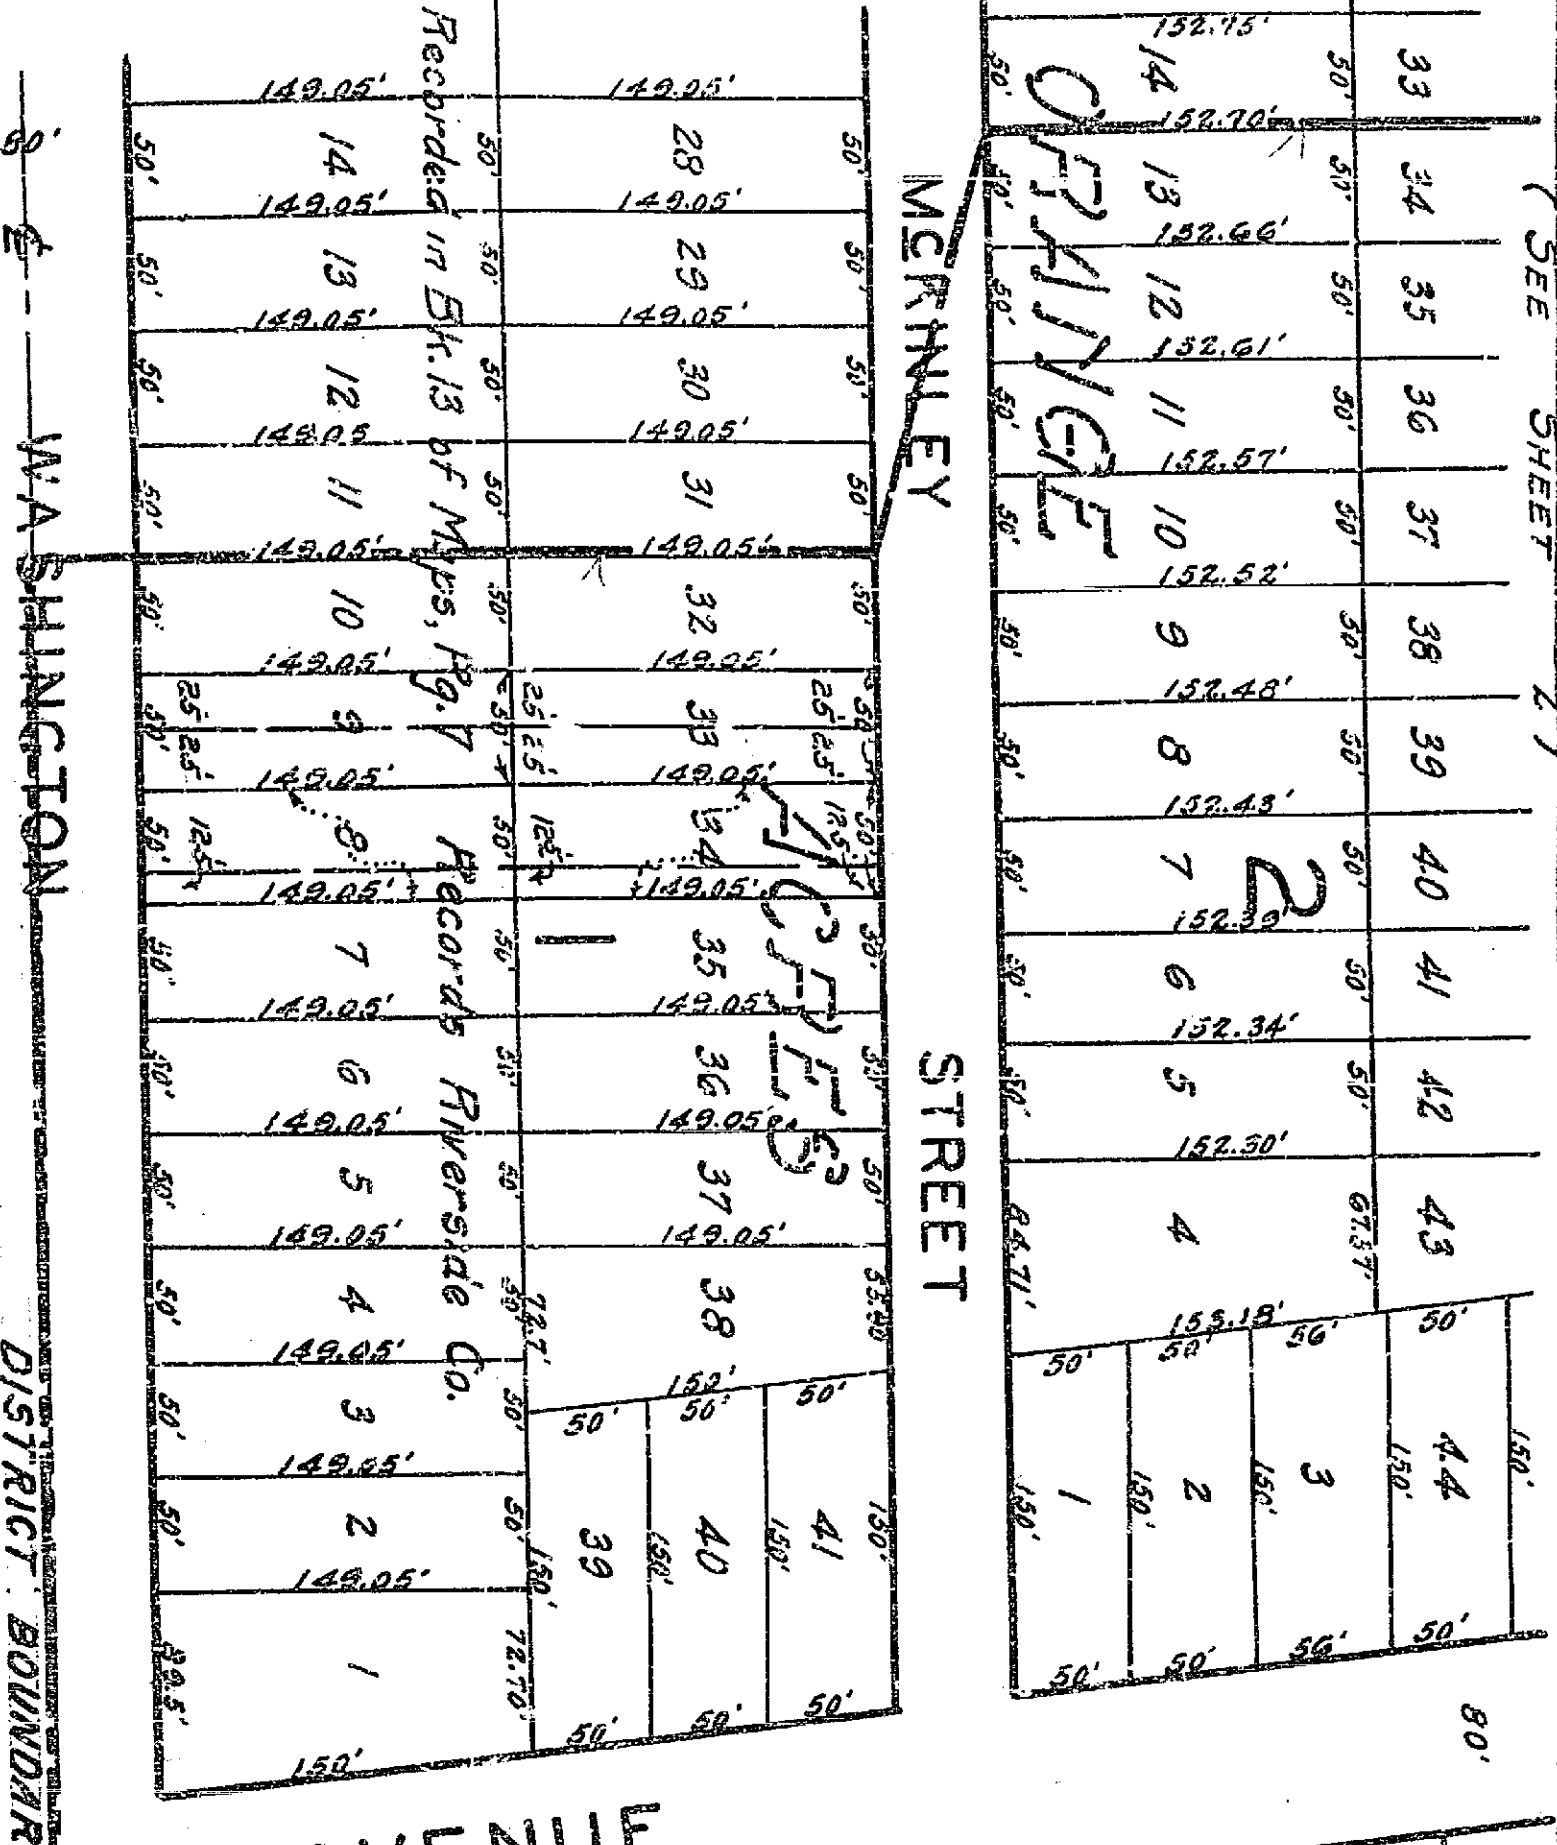 ( SEE SHEET 2 )
33 34 35 36 37 38 39 40 41 42 43
50' 50' 50' 50' 50' 50' 50' 50' 50' 50' 67.37'
152.75' 152.70' 152.66' 152.61' 152.57' 152.52' 152.48' 152.43' 152.39' 152.34' 152.30' 153.18'
14 13 12 11 10 9 8 7 6 5 4
2
ORANGE
50' 50' 50' 50' 50' 50' 50' 50' 50' 50' 84.71'
50' 56' 50' 50'
150' 150' 150' 150' 150'
44 3 2 1
50' 56' 50' 50'
80'
MCKINLEY STREET
50' 50' 50' 50' 50' 50' 50' 50' 50' 50' 53.40
25' 25' 12.5'
28 29 30 31 32 33 34 35 36 37 38
ACRES
149.05' 149.05' 149.05' 149.05' 149.05' 149.05' 149.05' 149.05' 149.05' 149.05' 149.05'
150'
50' 50' 50'
150' 150' 150' 150'
41 40 39
50' 50' 50'
1
25' 25' 12.5'
50' 50' 50' 50' 50' 50' 50' 50' 50' 50' 50' 50' 50' 72.70'
72.7'
Recorded in Bk. 13 of Maps, Pg. 7 Records Riverside Co.
149.05' 149.05' 149.05' 149.05 149.05' 149.05' 149.05' 149.05' 149.05' 149.05' 149.05' 149.05' 149.05' 149.05'
14 13 12 11 10 9 8 7 6 5 4 3 2 1
25' 25' 12.5'
50' 50' 50' 50' 50' 50' 50' 50' 50' 50' 50' 50' 50'
150'
50' ℄ WASHINGTON
DISTRICT BOUNDAR